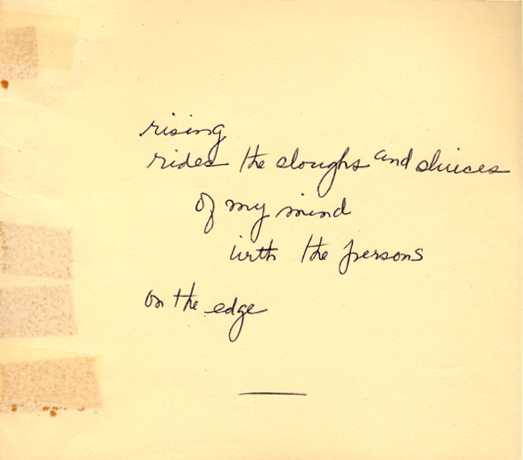 rising
rides the sloughs and sluices
of my mind
with the persons
on the edge